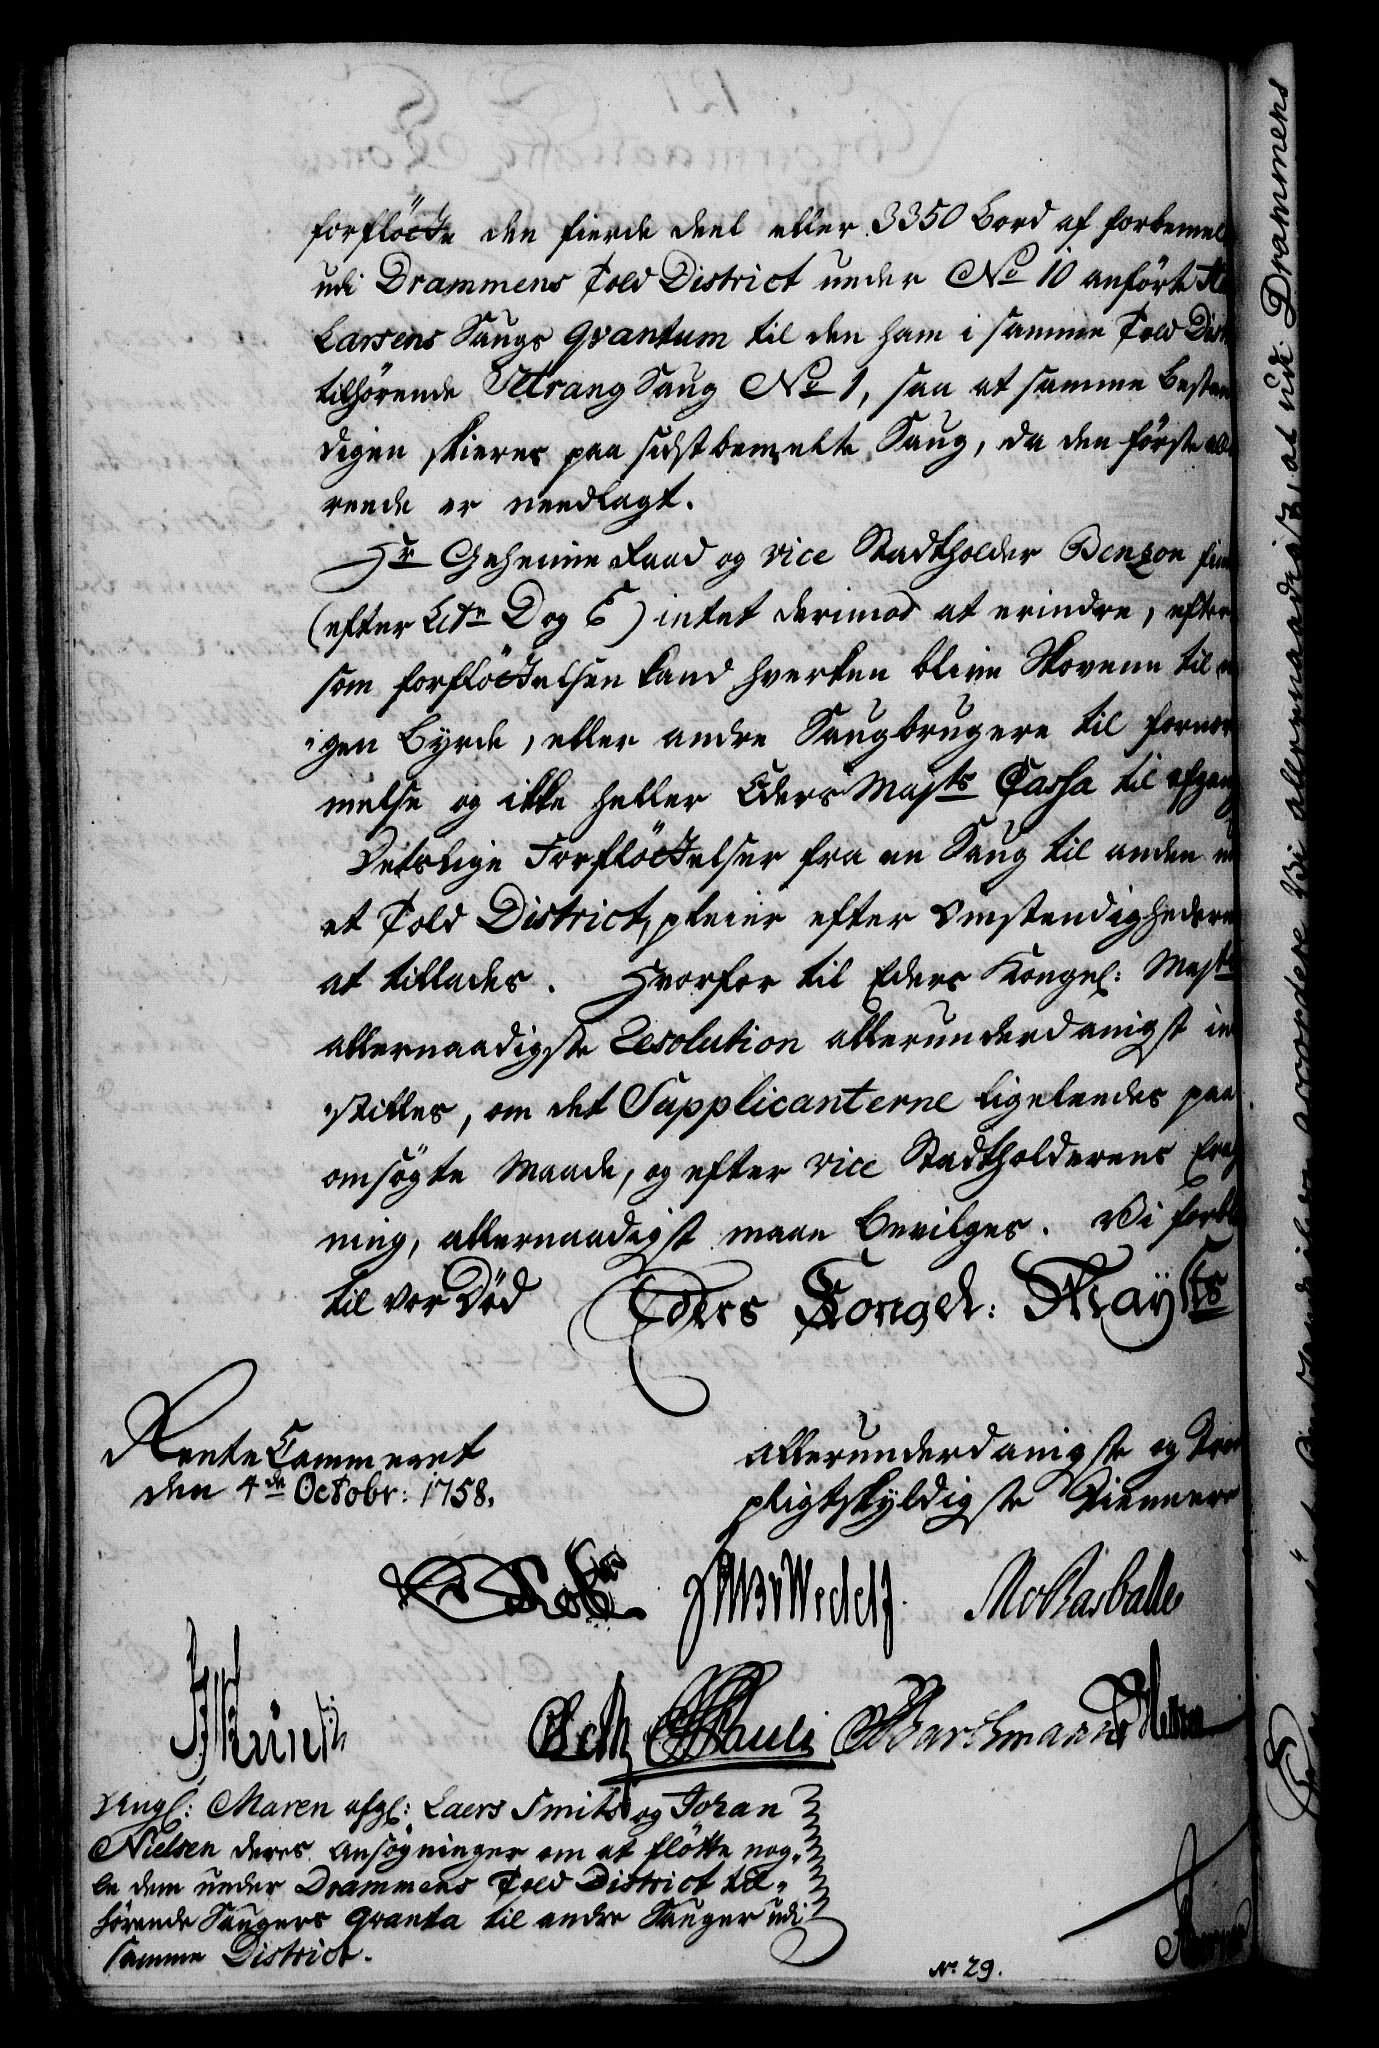 forfløtte den fierde deel eller 3350 Bord af forbemel
udi Drammens Told District under No 10 anførte
Larsens Saugs Qvantum til den ham i samme Told Dist
tilhørende Saug No 1, saa at samme bestan
digen skieres paa sidstbemelte Saug, da den første alle
reede er needlagt.
Hr Geheime Raad og vice Stadtholder Benzon fin
(efter Litr D og E) intet derimod at erindre, efter
som forfløttelsen kand hverken blive Skovene til
gen Byrde, eller andre Saugbrugere til fornær
melse og ikke heller Eders Majts Cassa til afgang
Deslige Forfløttelser fra en Saug til anden
et Told District, pleier efter Omstendighederne
at tillades. Hvorfor til Eders Kongel: Majts
allernaadigste Resolution allerunderdanigst in
stilles, om det Supplicanterne ligeledes paa
omsøgte Maade, og efter vice Stadtholderens Erag
ning, allernaadigst maae bevilges. Vi forbl
til vor Død Eders Kongel: Mayts
Rente Cammeret
den 4de Octobr: 1758.
allerunderdanigste og Troe
pligtskyldigste Tiennere
Wedell
Pauli Barthmann
Angl: Maren afgl: Laers Smits og Johan
Nielsen deres Ansøgninger om at fløtte nog-
le dem under Drammens Told District til-
hørende Saugers Qvanta til andre Sauger udi
samme District.
No. 29.
Vi allernaadigst, at udi Drammens